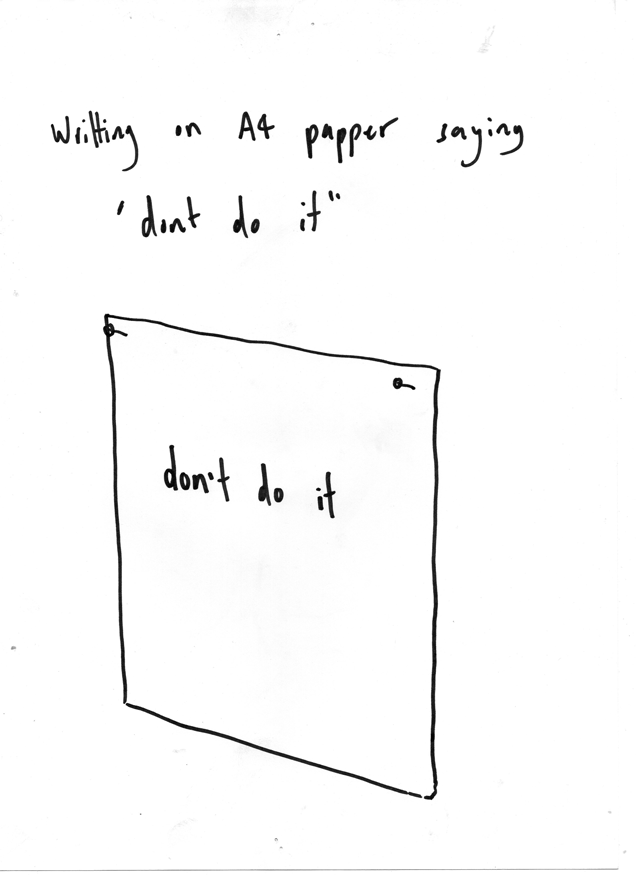 Writting on A4 papper saying
'dont do it"
don't do it